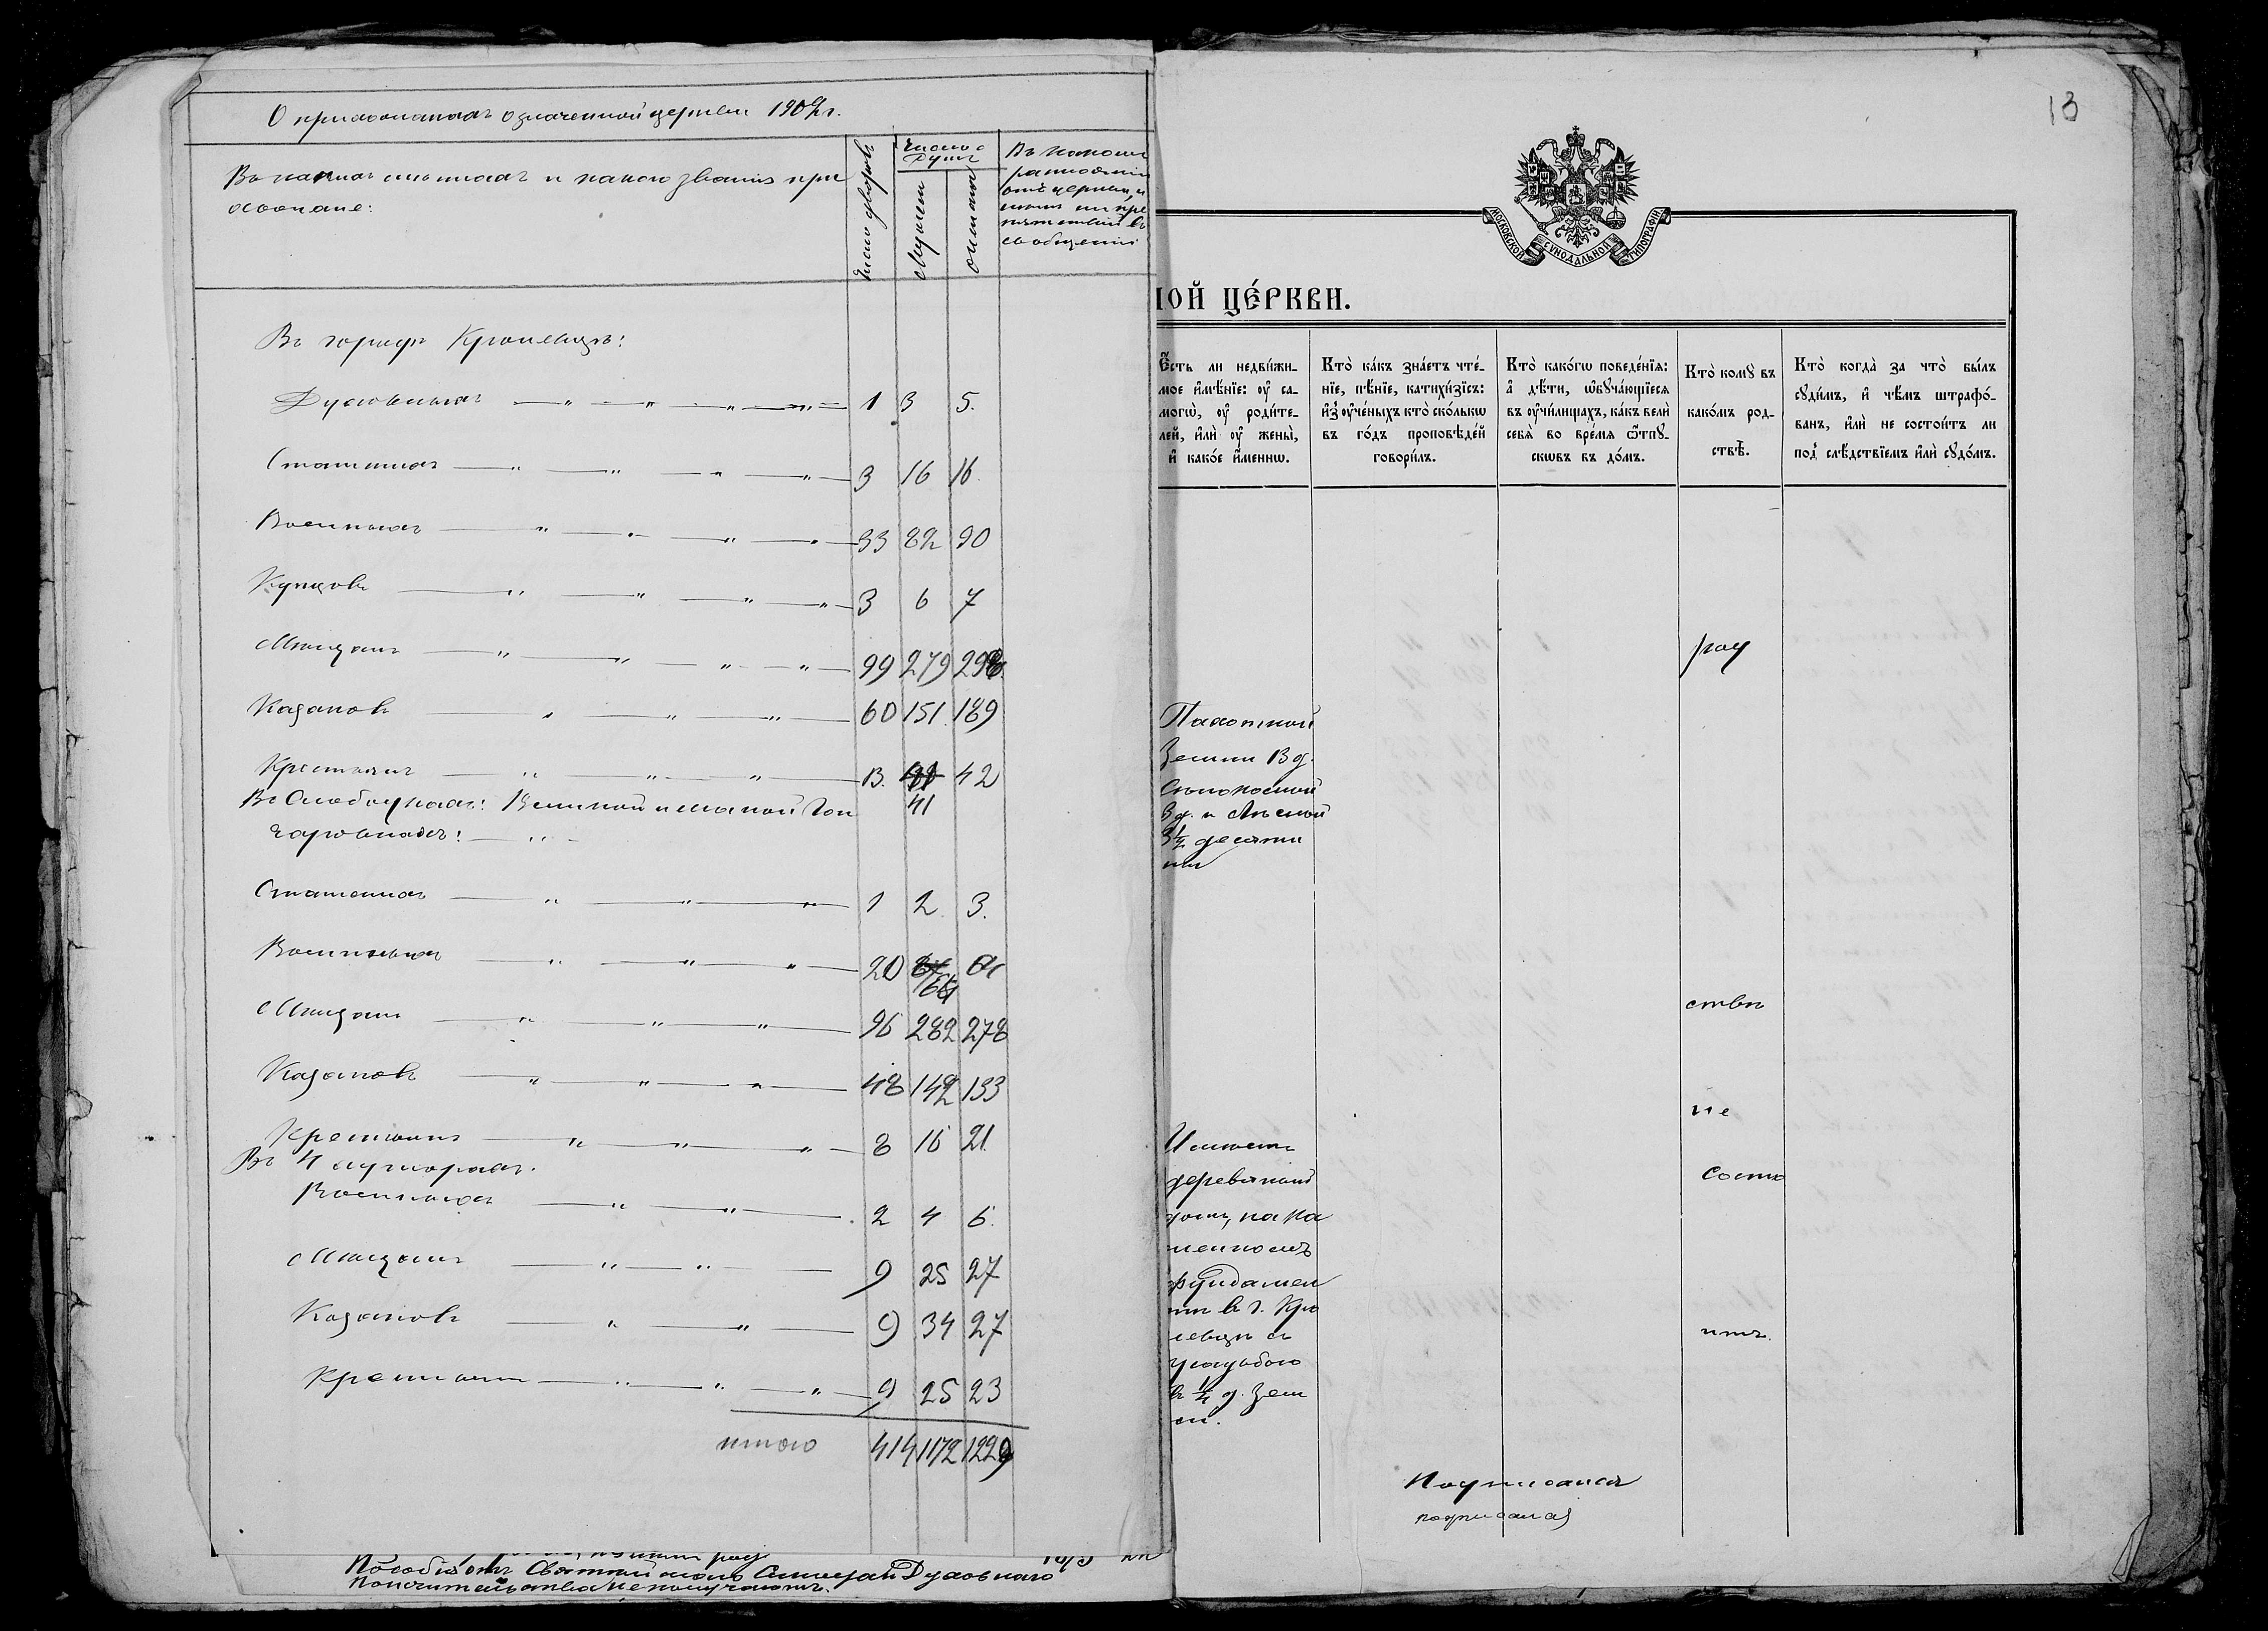 О прихожанахъ означенной церкви 1909 г.
Въ какихъ именно и какого званія при
хожане:
Число дворовъ
Число
Душъ
Мужеск
женска
Въ какомъ
разстояніи
отъ церкви, и
нѣтъ ли пре
пятствій въ
сообщеніи
Въ городѣ Кролевцѣ:
Духовныхъ — „ — „ — „ — „ — 1 3 5.
Статскихъ — „ — „ — „ — „ — 3 16 16.
Военныхъ — „ — „ — „ — „ — 33 82 90
Купцовъ — „ — „ — „ — „ — 3 6 7
Мѣщанъ — „ — „ — „ — „ — 99 279 298
Казаковъ — „ — „ — „ — 60 151. 189
Крестьянъ — „ — „ — „ — 13. 42
Въ Слободкахъ: Великой и малой Гон 41
чаровкахъ: — „ —
Статскихъ — „ — „ — „ — 1 2. 3.
Военныхъ — „ — „ — „ — 20 64
66
Мѣщанъ — „ — „ — „ 96 282 278
Казаковъ — „ — „ — „ — 48 142 133
Крестьянъ — „ — „ — „ — 8 16 21.
Въ 4 хуторахъ.
Военныхъ — „ — „ — 2 4 6.
Мѣщанъ — „ — „ — 9 25 27
Казаковъ — „ — „ — 9 34 27
Крестьянъ — „ — „ — „ — 9 25 23
итого 414 1172 1229
Пособія отъ Святѣйшаго Синода и Духовнаго
Попечительства не получаютъ.
13
МОСКОВСКОЙ СѴНОДАЛЬНОЙ ТИПОГРАФІИ
НОЙ ЦЕ́РКВИ.
Е҆́сть ли недви́жи-
мое и҆мѣ́нїе: ѹ҆ са-
могѡ̀, ѹ҆ роди́те-
лей, и҆лѝ ѹ҆ жены̀,
и҆ како́е и҆́меннѡ.
Кто̀ ка́къ зна́етъ чте́-
нїе, пѣ́нїе, катихи́зїсъ:
и҆з̾ ѹ҆че́ныхъ кто̀ ско́лькѡ
въ го́дъ проповѣ́дей
говори́лъ.
Кто̀ како́гѡ поведе́нїѧ:
а҆̀ дѣ́ти, ѡ҆бꙋча́ющїесѧ
въ ѹ҆чи́лищахъ, ка́къ велѝ
себѧ̀ во вре́мѧ ѿпꙋ-
скѡвъ въ до́мъ.
Кто̀ комꙋ̀ въ
како́мъ род-
ствѣ̀.
Кто̀ когда̀ за что̀ бы́лъ
сꙋди́мъ, и҆ чѣ́мъ штрафо́-
ванъ, и҆лѝ не состои́тъ ли
под̾ слѣ́дствїемъ и҆лѝ сꙋдо́мъ.
род
Пахотной
Земли 13 д.
сѣнокосной
3 д. и лѣсной
3½ десяти
ны
ствѣ
не
состо
итъ.
Имѣетъ
деревянный
домъ, на ка
менномъ
фундамен
тѣ въ г. Кро
левцѣ съ
усадьбою
въ ¼ д. Зем
ли.